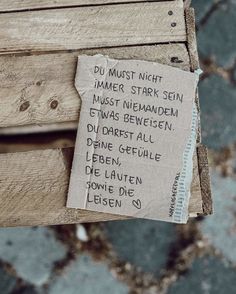 DU MUSST NICHT
IMMER STARK SEIN
MUSST NIEMANDEM
ETWAS BEWEISEN.
DU DARFST ALL
DEINE GEFÜHLE
LEBEN,
DIE LAUTEN
SOWIE DIE
LEISEN ♡